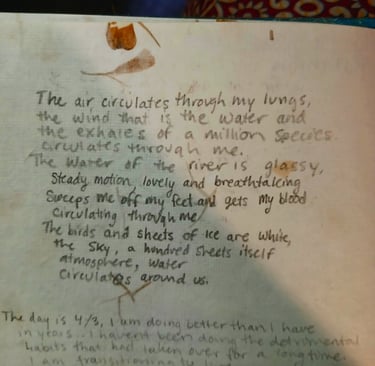 The air circulates through my lungs,
the wind that is the water and
the exhales of a million species
circulates through me.
The water of the river is glassy,
Steady motion, lovely and breathtaking
Sweeps me off my feet and gets my blood
Circulating through me
The birds and sheets of ice are white,
the sky, a hundred sheets itself
atmosphere, water
Circulates around us.
The day is 4/3, I am doing better than I have
in years... I havent been doing the detrimental
habits that had taken over for a long time.
I am transitioning